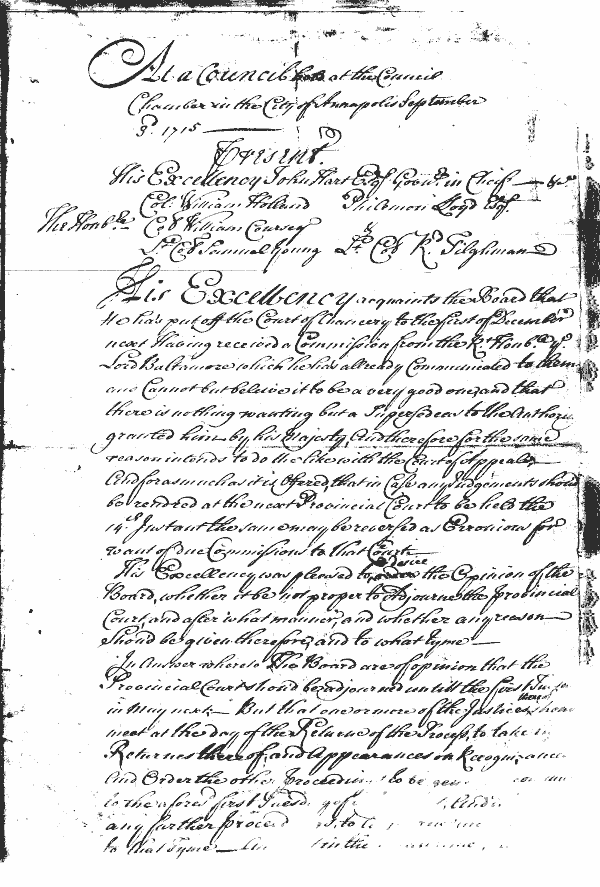 At a Council held at the Council
Chamber in the City of Annapolis September
3d. 1715
Present
His Excellency John Hart Esqr. Govr. in Chief &c
Col. William Holland Philemon Lloyd Esqr.
The Honble. Col William Coursey &
Lt. Col Samuel Young Lt. Col Rd. Tilghman
His Excellency acquaints the Board that
He has put off the Court of Chancery to the first of December
next Having received a Commission from the Rt. Honble. ye.
Lord Baltamore which he has already Communicated to them
and Cannot but beleive it to be a very good one, and that
there is nothing wanting but a Supersedeas to the Authori
granted him by his Majesty, And therefore for the same
reason intends to do the like with the Court of Appeals
And forasmuch as it is Offered, that in Case any Judgements should
be rendred at the next Provincial Court to be held the
14th. Instant the same may be reversed as Erronious for
want of due Commissions to that Courte
His Excellency was pleased to desire the Opinion of the
Board, whether it be not proper to Adjourne the Provincial
Court, and after what manner, and whether any reason
Should be given therefore, and to what tyme
In Answer whereto The Board are of opinion that the
Provincial Court should be adjourned untill the first Tues
in may next. But that one or more of the Justices thereof shou
meet at the day of the Returne of the Process, to take
Returnes thereof, and Appearances on Recognizances
And Order the other Proceedin to be
to the afores first Tuesd
any further proceed
to that Tyme